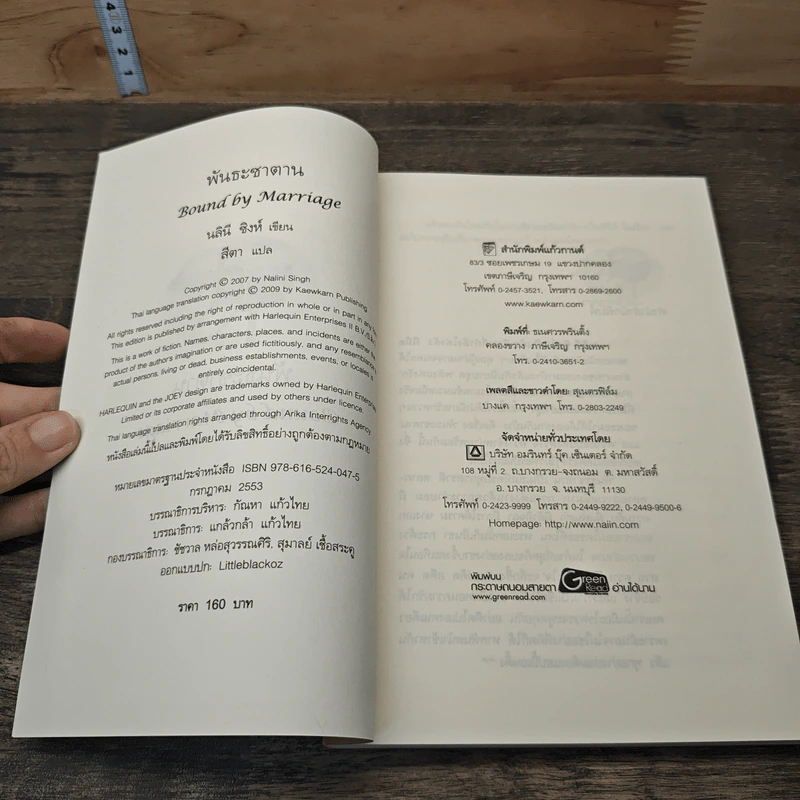 4
3
2
1
พันธะซาตาน
Bound by Marriage
นลินี ซิงห์ เขียน
สีตา แปล
Copyright © 2007 by Nalini Singh
Thai language translation copyright © 2009 by Kaewkarn Publishing
All rights reserved including the right of reproduction in whole or in part in any
This edition is published by arrangement with Harlequin Enterprises II B.V./S.à.r.l
This is a work of fiction. Names, characters, places, and incidents are either the
product of the author's imagination or are used fictitiously, and any resemblance
actual persons, living or dead, business establishments, events, or locales is
entirely coincidental.
HARLEQUIN and the JOEY design are trademarks owned by Harlequin Enterprises
Limited or its corporate affiliates and used by others under licence.
Thai language translation rights arranged through Arika Interrights Agency
หนังสือเล่มนี้แปลและพิมพ์โดยได้รับลิขสิทธิ์อย่างถูกต้องตามกฎหมาย
หมายเลขมาตรฐานประจำหนังสือ ISBN 978-616-524-047-5
กรกฎาคม 2553
บรรณาธิการบริหาร: กัณหา แก้วไทย
บรรณาธิการ: แกล้วกล้า แก้วไทย
กองบรรณาธิการ: ชัชวาล หล่อสุวรรณศิริ, สุมาลย์ เชื้อสระคู
ออกแบบปก: Littleblackoz
ราคา 160 บาท
สำนักพิมพ์แก้วกานต์
83/3 ซอยเพชรเกษม 19 แขวงปากคลอง
เขตภาษีเจริญ กรุงเทพฯ 10160
โทรศัพท์ 0-2457-3521, โทรสาร 0-2869-2600
www.kaewkarn.com
พิมพ์ที่: ธเนศวรพรินติ้ง
คลองขวาง ภาษีเจริญ กรุงเทพฯ
โทร. 0-2410-3651-2
เพลตสีและขาวดำโดย: สุเนตรฟิล์ม
บางแค กรุงเทพฯ โทร. 0-2803-2249
จัดจำหน่ายทั่วประเทศโดย
บริษัท อมรินทร์ บุ๊ค เซ็นเตอร์ จำกัด
108 หมู่ที่ 2 ถ.บางกรวย-จงถนอม ต. มหาสวัสดิ์
อ. บางกรวย จ. นนทบุรี 11130
โทรศัพท์ 0-2423-9999 โทรสาร 0-2449-9222, 0-2449-9500-6
Homepage: http://www.naiin.com
พิมพ์บน
กระดาษถนอมสายตา Green Read อ่านได้นาน
www.greenread.com